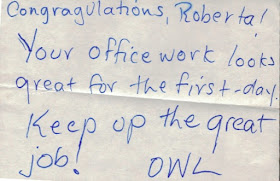 Congragulations, Roberta!
Your office work looks
great for the first-day.
Keep up the great
job!     OWL